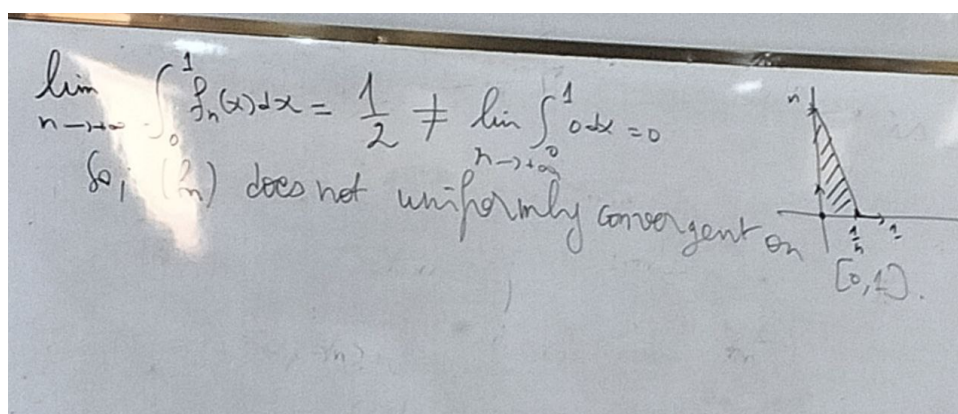 lim n→+∞ ∫₀¹ fₙ(x)dx = 1/2 ≠ lim n→+∞ ∫₀¹ 0dx = 0
So, (fₙ) does not uniformly convergent on [0,1].
n
1/n 1